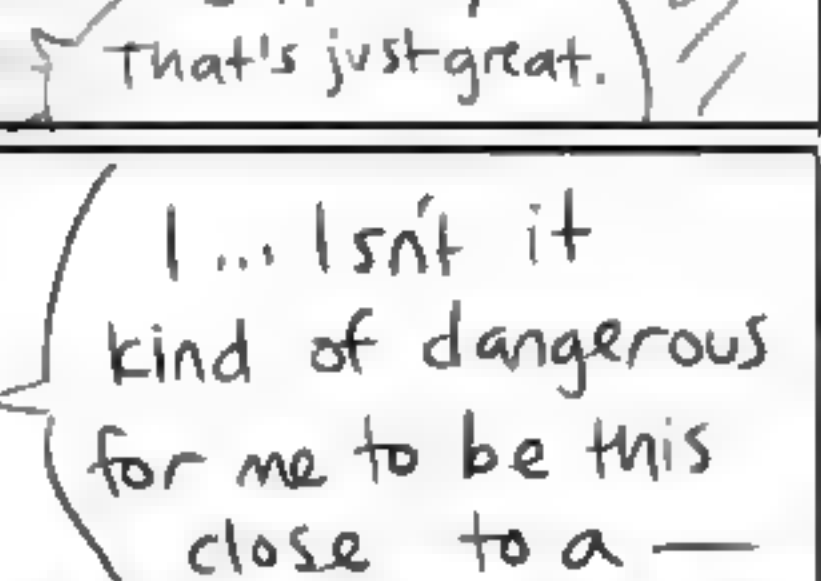 That's just great.
I... Isn't it
kind of dangerous
for me to be this
close to a —